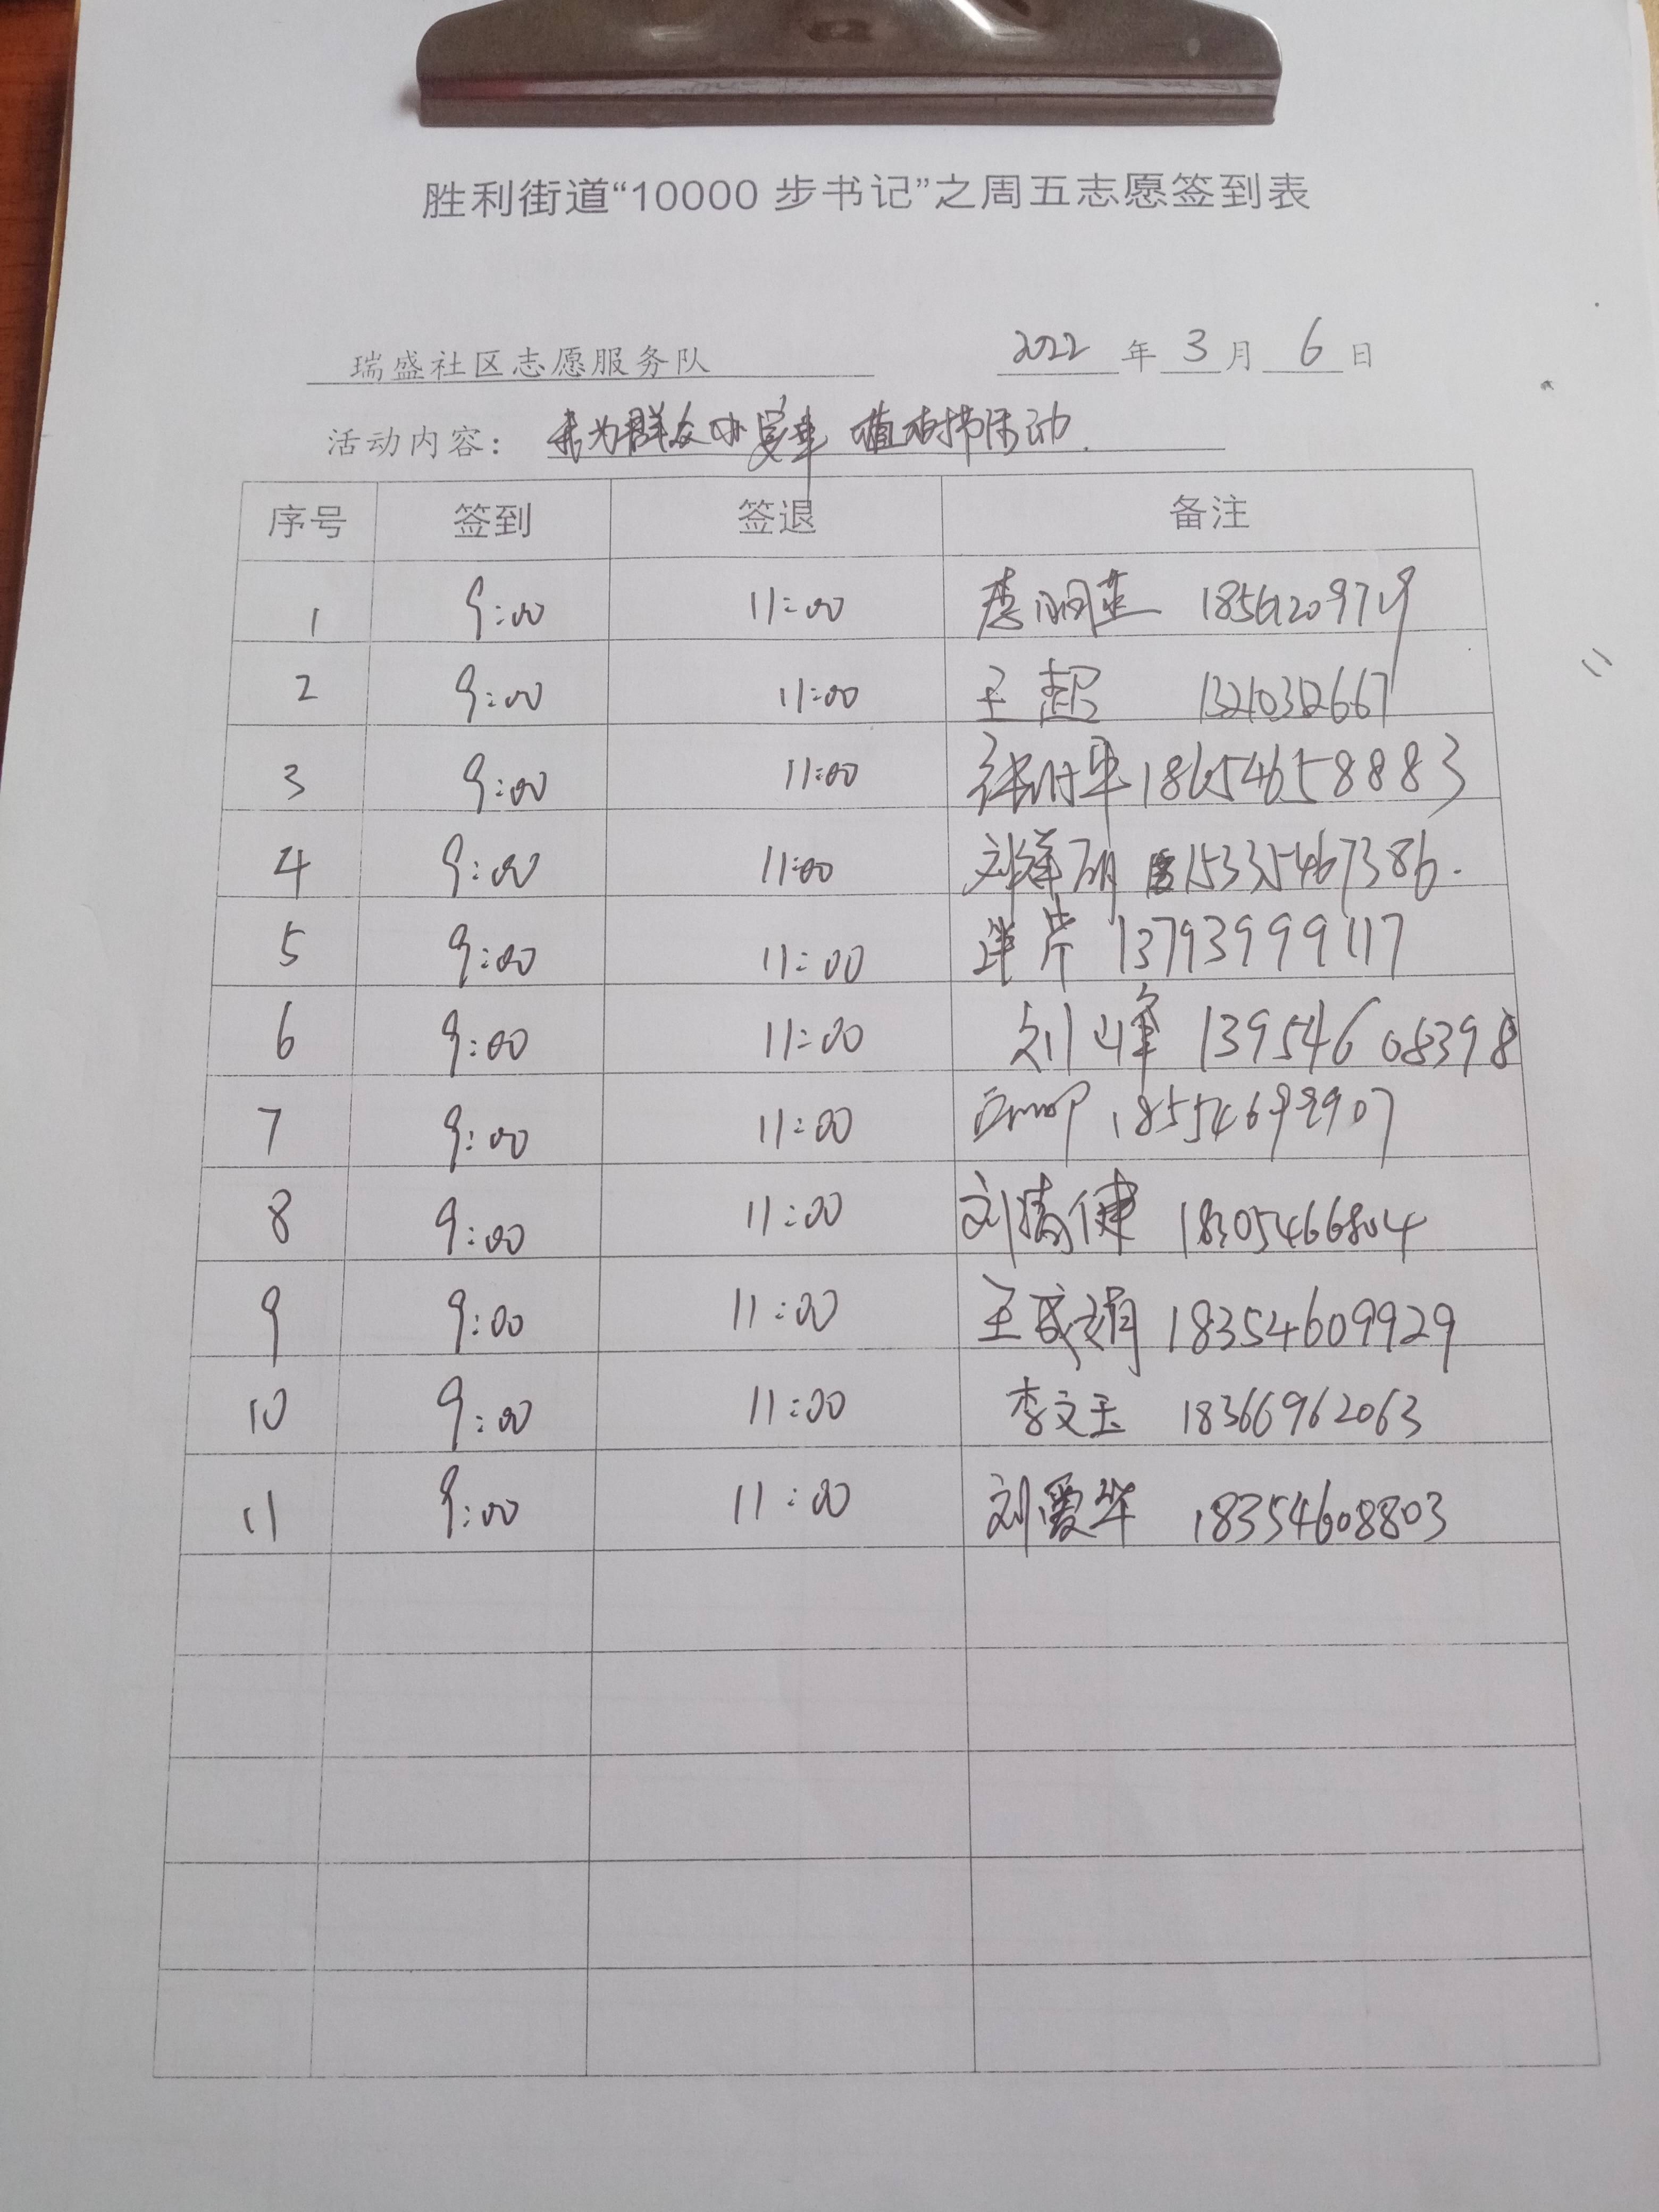 胜利街道“10000 步书记”之周五志愿签到表
瑞盛社区志愿服务队 2022 年 3 月 6 日
活动内容: 我为群众办实事 植树节活动.
序号 签到 签退 备注
1 9:00 11:00 李
2 9:00 11:00 王超
3 9:00 11:00 18654658883
4 9:00 11:00 刘 15335467386.
5 9:00 11:00 13793999117
6 9:00 11:00 刘峰 139546 08398
7 9:00 11:00 18554699907
8 9:00 11:00 刘 健 18305466804
9 9:00 11:00 王 娟 18354609929
10 9:00 11:00 李文玉 18366962063
11 9:00 11:00 刘爱华 18354608803